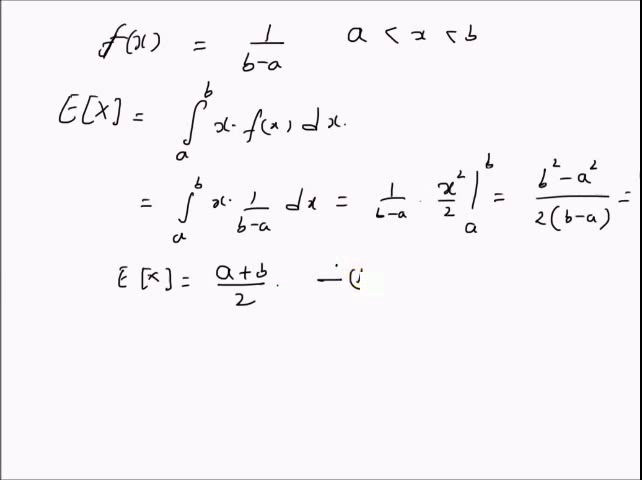 f(x) = 1/(b-a)   a < x < b
E[X] = ∫_a^b x · f(x) dx.
= ∫_a^b x · 1/(b-a) dx = 1/(b-a) · x²/2 |_a^b = (b² - a²)/(2(b-a)) =
E[x] = (a+b)/2 . — (i